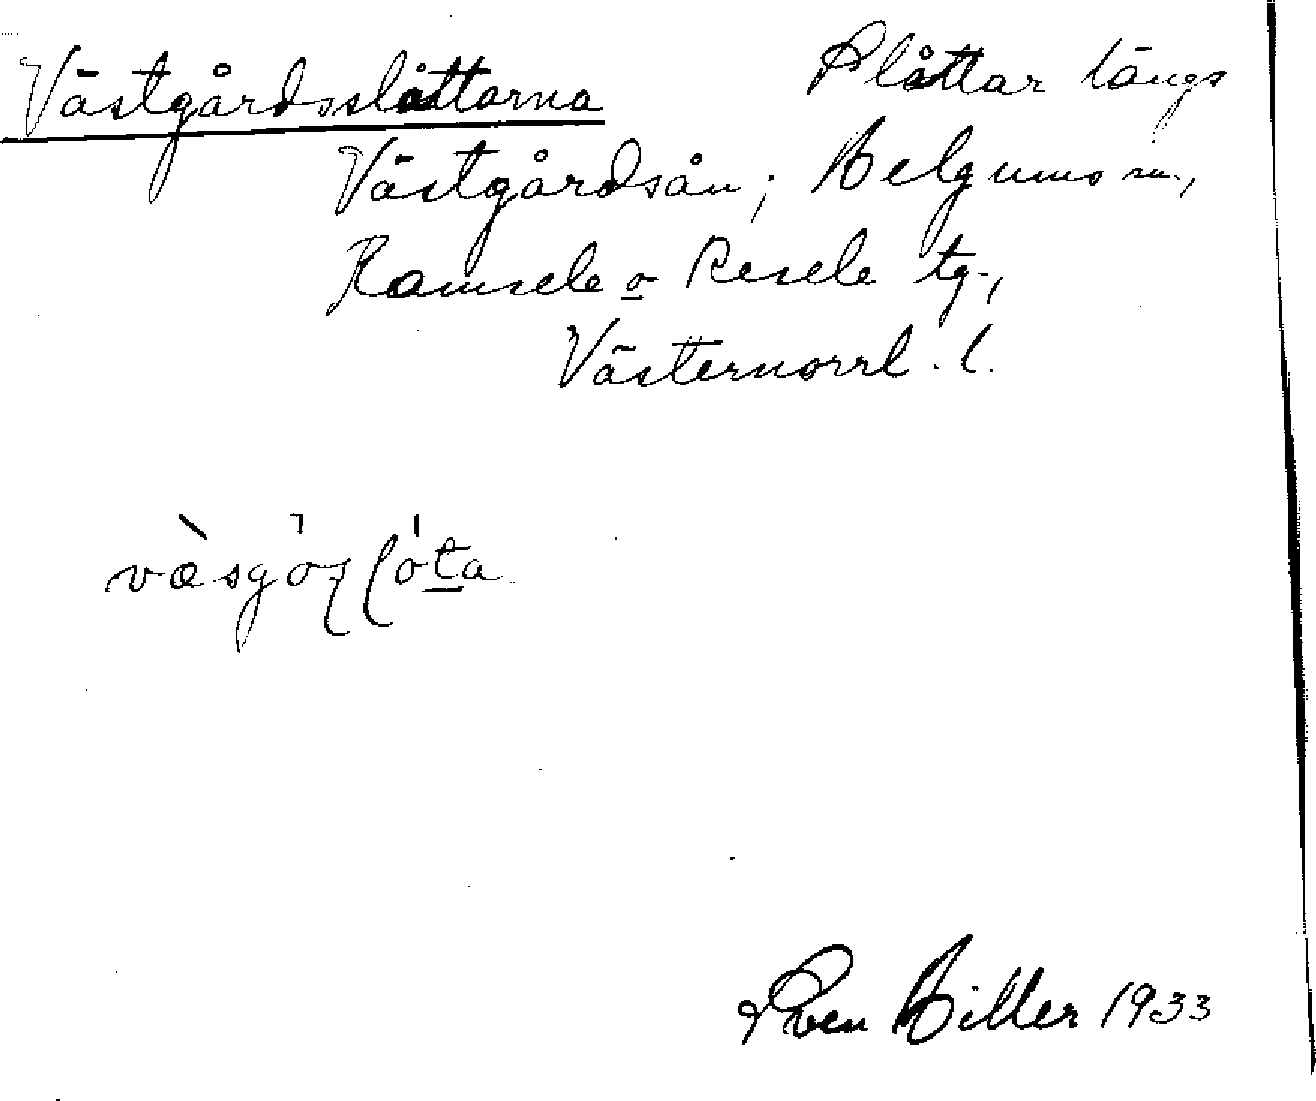 Västgårdsslåttarna Slåttar längs
Västgårdsån; Helgums sn.,
Ramsele o Resele tg.,
Västernorrl. l.
Sven Hiller 1933